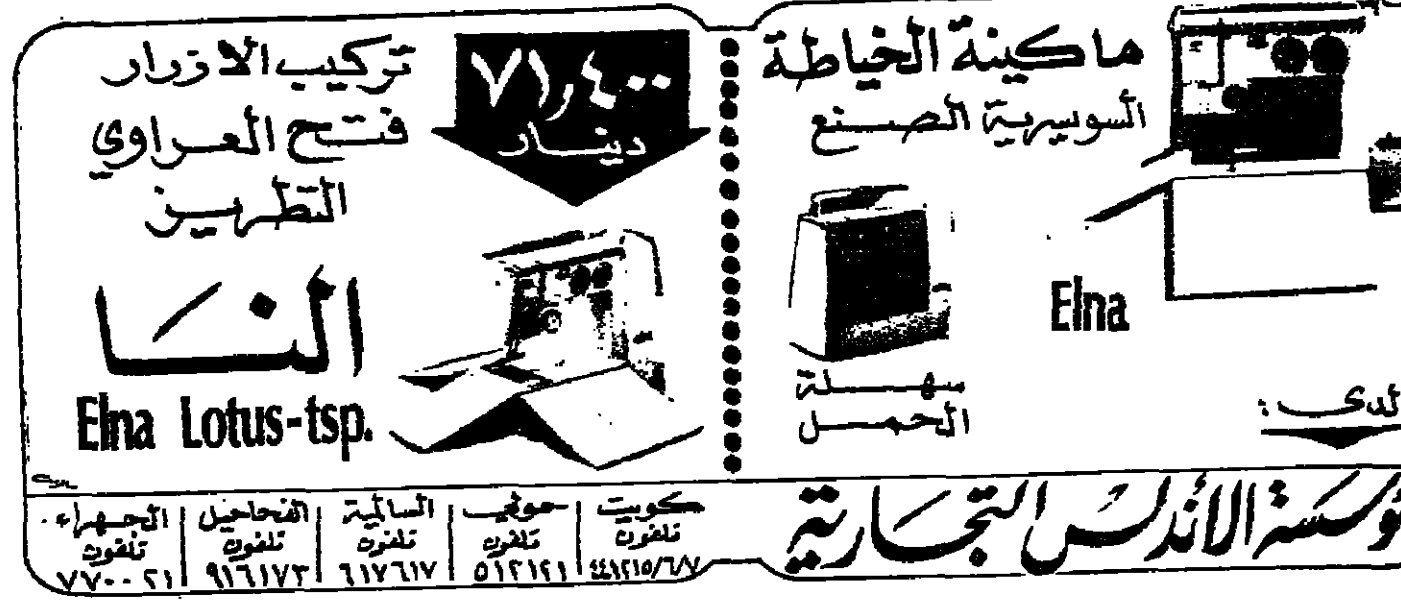 ماكينة الخياطة
السويسرية الصنع
Elna
سهلة
الحمل
لدى :
٧١,٤٠٠
دينار
تركيب الازرار
فتح العراوي
التطريز
النا
Elna Lotus-tsp.
ؤسسة الاندلس التجارية
كويت
تلفون
٤٤١٢١٥/٦/٧
حولي
تلفون
٥١٢١٢١
السالمية
تلفون
٦١٧٦١٧
الفحاحيل
تلفون
٩١٦١٧٣
الجهراء
تلفون
٧٧٠٠٢١